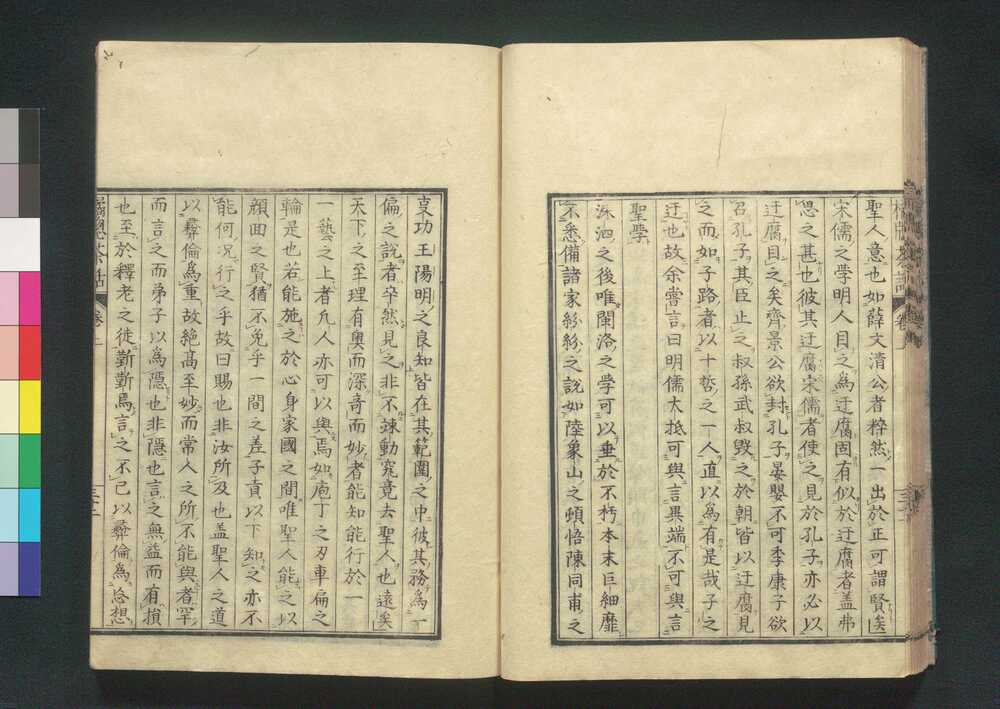 聖人意也如薛文清公者粹然一出於正可謂賢矣
宋儒之學明人目之為迂腐固有似於迂腐者蓋弗
思之甚也彼其迂腐宋儒者使之見於孔子亦必以
迂腐目之矣齊景公欲封孔子晏嬰不可季康子欲
召孔子其臣止之叔孫武叔毀之於朝皆以迂腐見
之而如子路者以十哲之一人直以為有是哉子之
迂也故余嘗言曰明儒大抵可與言異端不可與言
聖學
洙泗之後唯閩洛之學可以垂於不朽本末巨細靡
不悉備諸家紛紛之說如陸象山之頓悟陳同甫之
事功王陽明之良知皆在其範圍之中彼其務為一
偏之說者卒然見之非不竦動究竟去聖人也遠矣
天下之至理有奧而深奇而妙者能知能行於一
一藝之上者凡人亦可以與焉如庖丁之刃車扁之
輪是也若能施之於心身家國之間唯聖人能之以
顏回之賢猶不免乎一間之差子貢以下知之亦不
能何況行之乎故曰賜也非汝所及也蓋聖人之道
以彝倫為重故絕高至妙而常人之所不能與者罕
而言之而弟子以為隱也非隱也言之無益而有損
也至於釋老之徒斷斷焉言之不已以彝倫為忩想
卷上
三十二